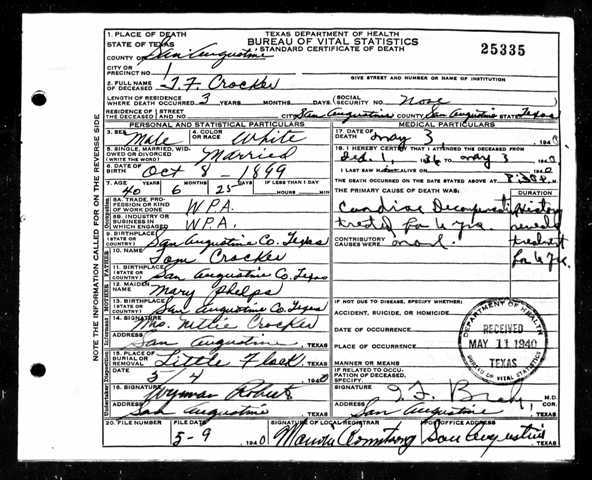 TEXAS DEPARTMENT OF HEALTH
BUREAU OF VITAL STATISTICS
STANDARD CERTIFICATE OF DEATH
25335
1. PLACE OF DEATH
STATE OF TEXAS
COUNTY OF San Augustine
CITY OR PRECINCT NO. 1
GIVE STREET AND NUMBER OR NAME OF INSTITUTION
2. FULL NAME OF DECEASED T. F. Crocker
LENGTH OF RESIDENCE WHERE DEATH OCCURRED 3 YEARS MONTHS DAYS SOCIAL SECURITY NO. None
RESIDENCE OF THE DECEASED STREET AND NO. CITY San Augustine COUNTY San Augustine STATE Texas
PERSONAL AND STATISTICAL PARTICULARS
3. SEX Male
4. COLOR OR RACE White
5. SINGLE, MARRIED, WIDOWED OR DIVORCED (WRITE THE WORD) Married
6. DATE OF BIRTH Oct 8 - 1899
7. AGE 40 YEARS 6 MONTHS 25 DAYS IF LESS THAN 1 DAY HOURS MIN
8A. TRADE, PROFESSION OR KIND OF WORK DONE W.P.A.
8B. INDUSTRY OR BUSINESS IN WHICH ENGAGED W.P.A.
9. BIRTHPLACE (STATE OR COUNTRY) San Augustine Co. Texas
10. NAME Tom Crocker
11. BIRTHPLACE (STATE OR COUNTRY) San Augustine Co. Texas
12. MAIDEN NAME Mary Phelps
13. BIRTHPLACE (STATE OR COUNTRY) San Augustine Co. Texas
14. SIGNATURE Mrs. Nettie Crocker
ADDRESS San Augustine, TEXAS
15. PLACE OF BURIAL OR REMOVAL Little Flock, TEXAS
DATE 5 4 1940
16. SIGNATURE Wyman Roberts
ADDRESS San Augustine TEXAS
MEDICAL PARTICULARS
17. DATE OF DEATH May 3 1940
18. I HEREBY CERTIFY THAT I ATTENDED THE DECEASED FROM 1, 36 TO May 3 1940
I LAST SAW ALIVE ON 1940
THE DEATH OCCURRED ON THE DATE STATED ABOVE AT M.
THE PRIMARY CAUSE OF DEATH WAS: DURATION
treated for 4 yrs.
CONTRIBUTORY CAUSES WERE
IF NOT DUE TO DISEASE, SPECIFY WHETHER:
ACCIDENT, SUICIDE, OR HOMICIDE
DATE OF OCCURRENCE
PLACE OF OCCURRENCE
MANNER OR MEANS
IF RELATED TO OCCUPATION OF DECEASED, SPECIFY
SIGNATURE M.D. COR.
ADDRESS San Augustine TEXAS
DEPARTMENT OF HEALTH
RECEIVED
MAY 11 1940
TEXAS
BUREAU OF VITAL STATISTICS
20. FILE NUMBER
FILE DATE 5-9 1940
SIGNATURE OF LOCAL REGISTRAR Armstrong
POST OFFICE ADDRESS San Augustine
NOTE THE INFORMATION CALLED FOR ON THE REVERSE SIDE